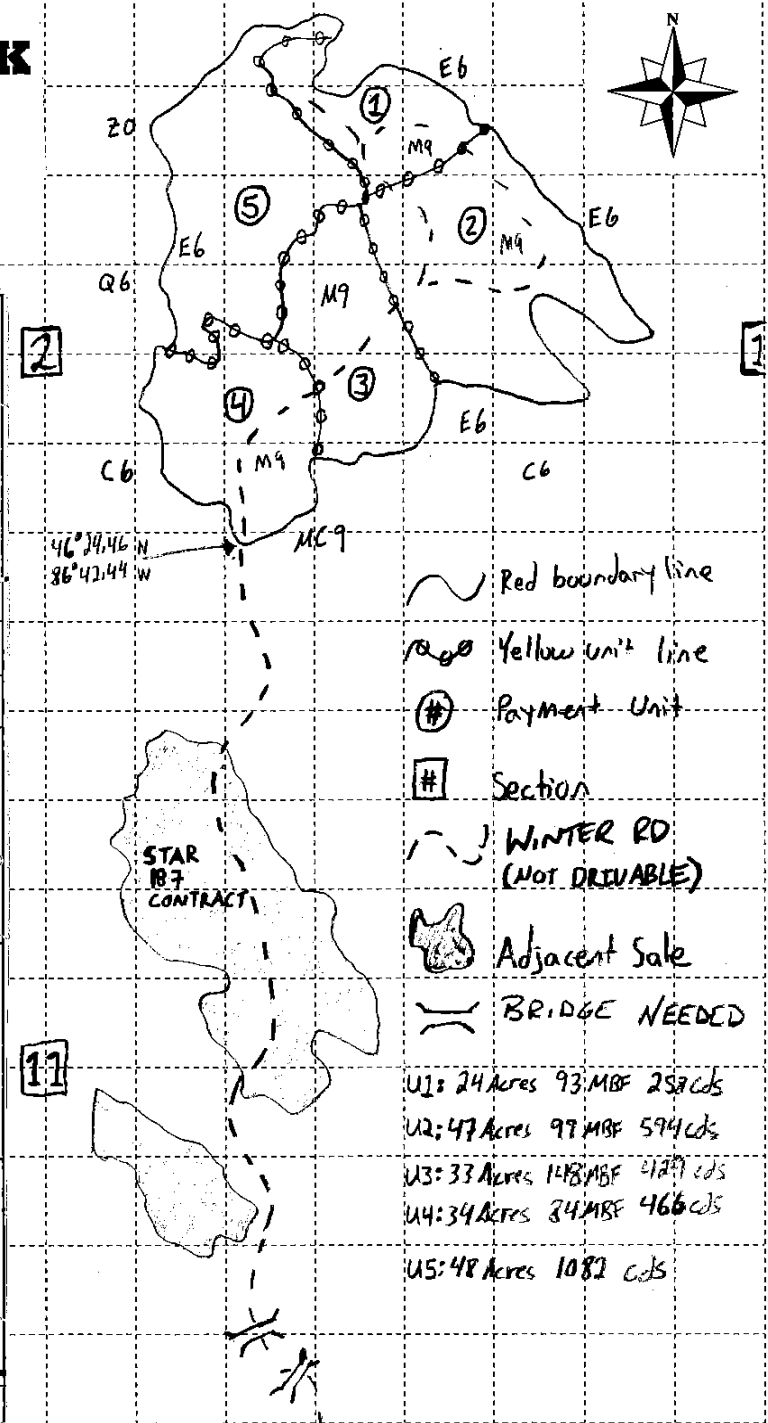 K
N
E6
ZO
1
M9
5
2
M9
E6
E6
Q6
M9
2
1
3
4
E6
C6
M9
C6
MC9
46°29.46 N
86°42.44 W
Red boundary line
Yellow unit line
# Payment Unit
# Section
WINTER RD
(NOT DRIVABLE)
STAR
187
CONTRACT
Adjacent Sale
BRIDGE NEEDED
11
U1: 24 Acres 93 MBF cds
U2: 47 Acres 99 MBF 594 cds
U3: 33 Acres 148 MBF 429 cds
U4: 34 Acres 84 MBF 466 cds
U5: 48 Acres 1082 cds